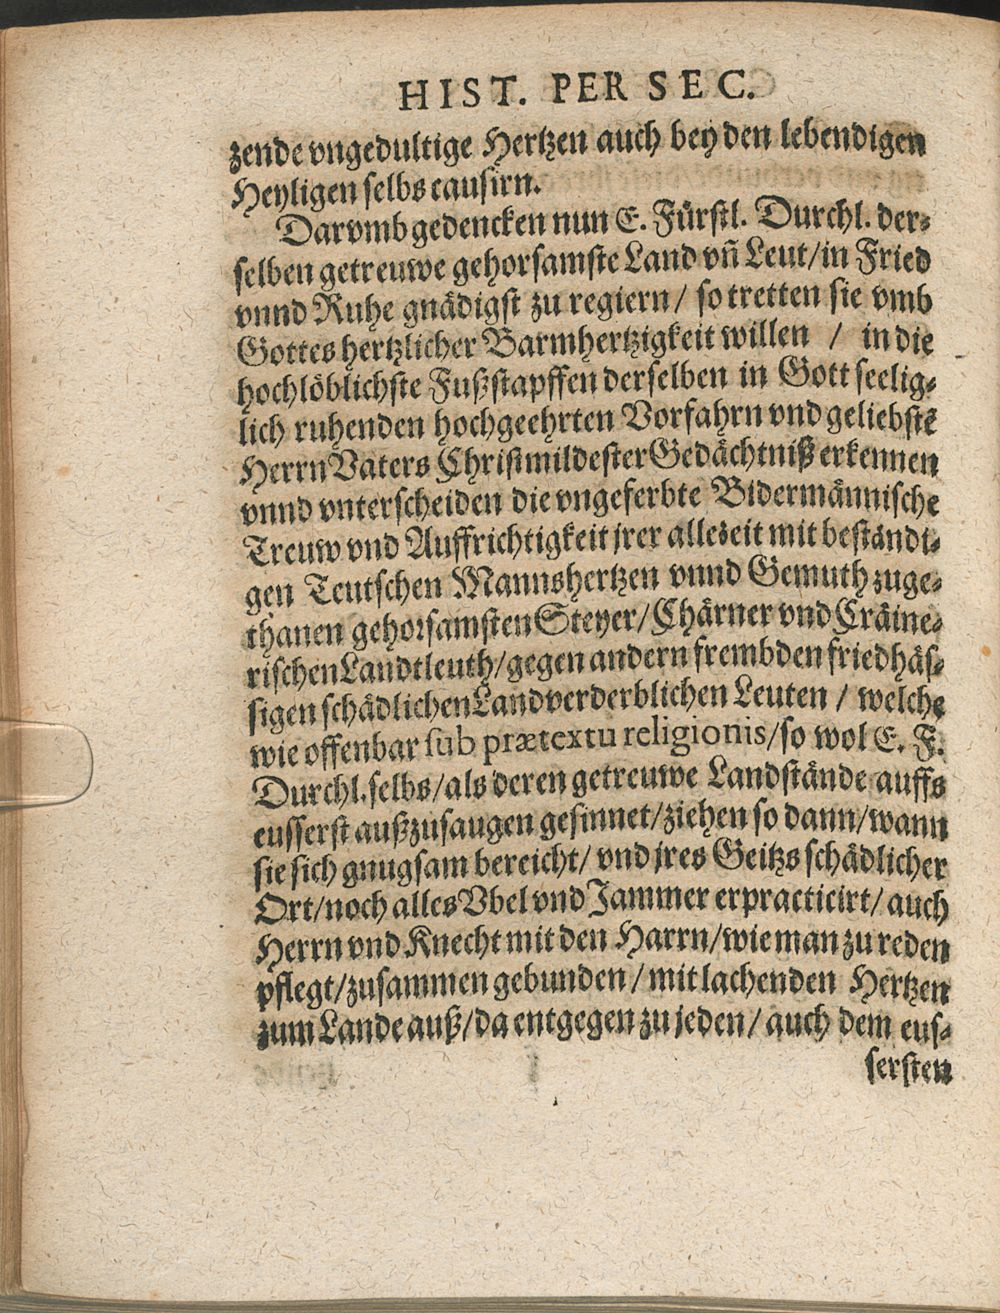 HIST. PERSEC.
zende vngedultige Hertzen auch bey den lebendigen
Heyligen selbs causirn.
Darvmb gedencken nun E. Fürstl. Durchl. der-
selben getreuwe gehorsamste Land vñ Leut/in Fried
vnnd Ruhe gnädigst zu regiern / so tretten sie vmb
Gottes hertzlicher Barmhertzigkeit willen / in die
hochlöblichste Fußstapffen derselben in Gott seelig-
lich ruhenden hochgeehrten Vorfahrn vnd geliebstē
Herrn Vaters Christmildester Gedächtniß erkennen
vnnd vnterscheiden die vngeferbte Bidermännische
Treuw vnd Auffrichtigkeit jrer allezeit mit beständi-
gen Teutschen Mannshertzen vnnd Gemuth zuge-
thanen gehorsamsten Steyer/Chärner vnd Cräine-
rischen Landtleuth/gegen andern frembden friedhäs-
sigen schädlichen Landverderblichen Leuten / welche
wie offenbar sub prætextu religionis/so wol E. F.
Durchl. selbs/als deren getreuwe Landstände auffs
eusserst außzusaugen gesinnet/ziehen so dann/wann
sie sich gnugsam bereicht/ vnd jres Geitzs schädlicher
Ort/noch alles Vbel vnd Jammer erpracticirt/ auch
Herrn vnd Knecht mit den Harrn/wie man zu reden
pflegt/zusammen gebunden / mit lachenden Hertzen
zum Lande auß/da entgegen zu jeden/ auch dem eus-
sersten